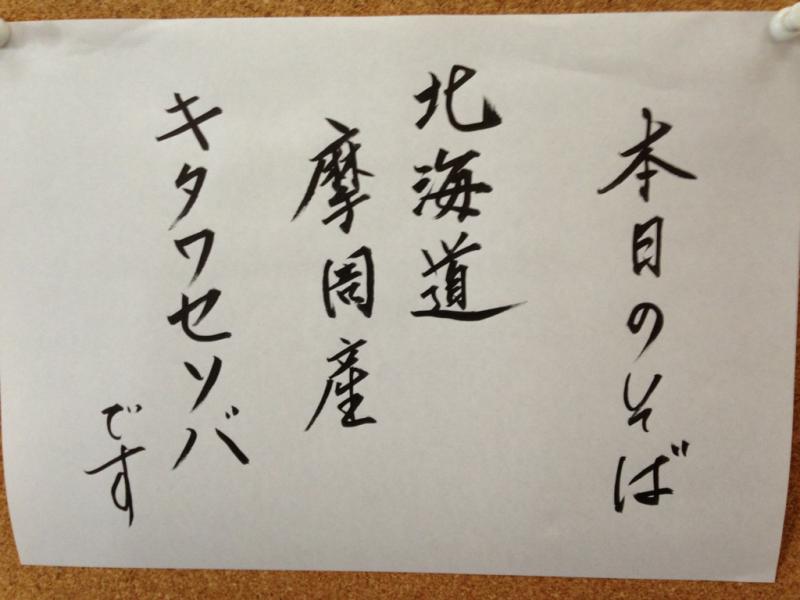 本日のそば
北海道
摩周産
キタワセソバ
です